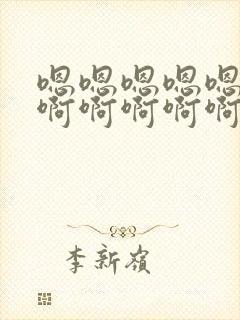 嗯嗯嗯嗯嗯
啊啊啊啊啊
李新嶺